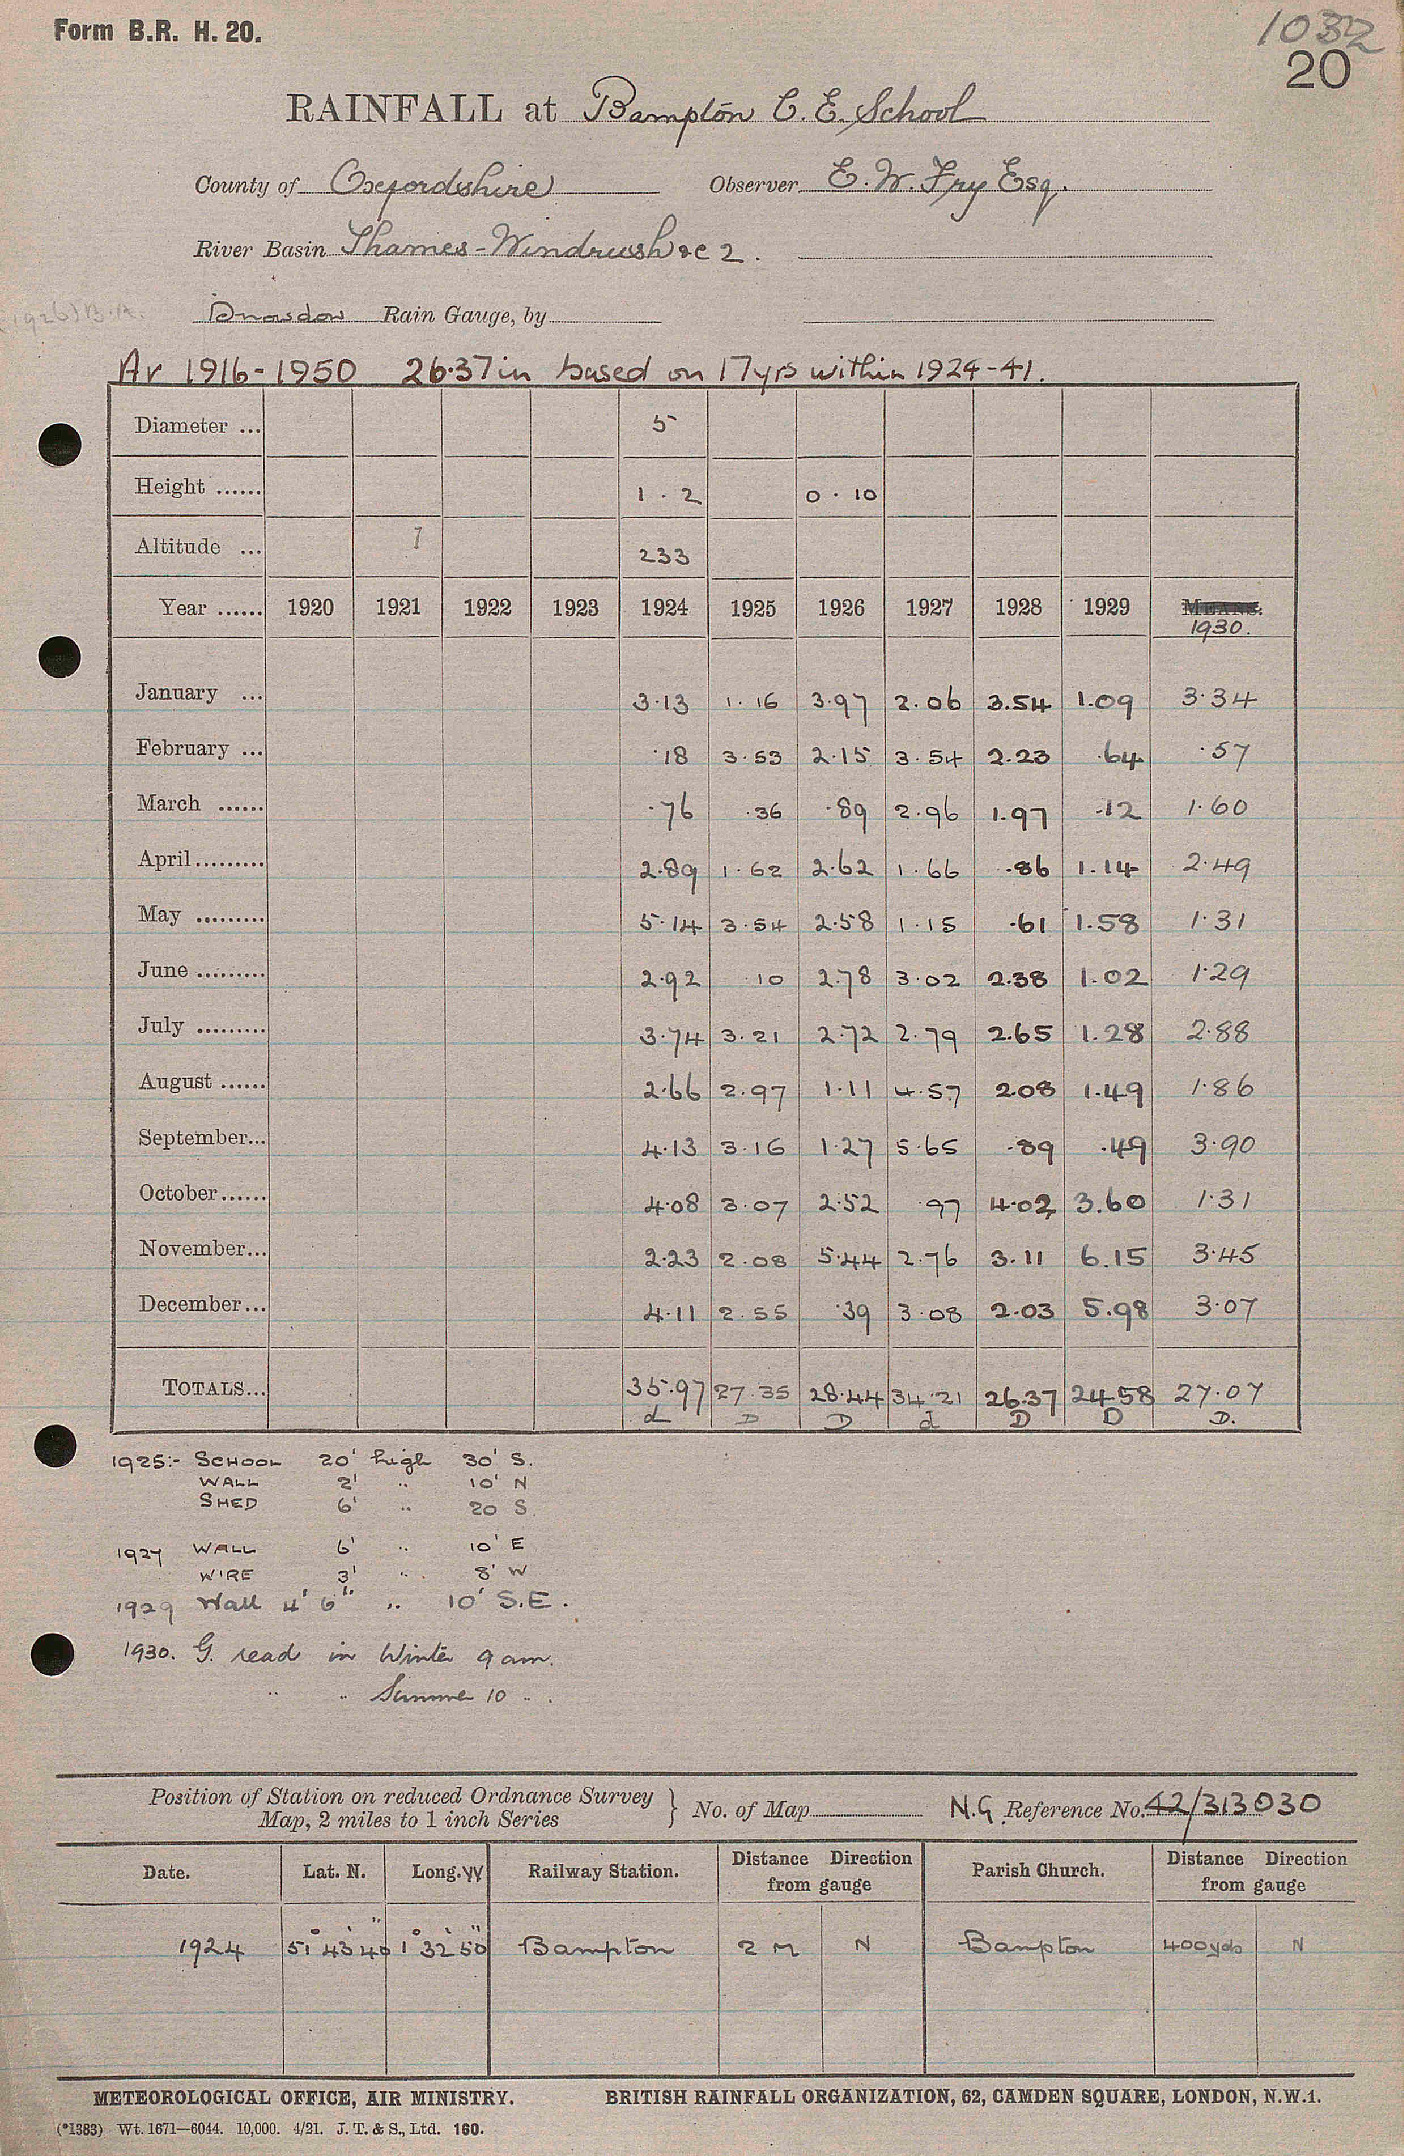 Form B.R. H. 20.
1032
20
RAINFALL at Bampton C. E. School
County of Oxfordshire Observer E. W. Fry Esq.
River Basin Thames - Windrush &c 2.
(1926) B.A.
Snowdon Rain Gauge, by
Av 1916-1950 26.37in based on 17yrs within 1924-41.
Diameter ... 5
Height ...... 1 . 2 0 . 10
Altitude ... 233
Year ...... 1920 1921 1922 1923 1924 1925 1926 1927 1928 1929 MEANS.
1930.
January ... 3.13 1.16 3.97 2.06 3.54 1.09 3.34
February ... .18 3.53 2.15 3.54 2.23 .64 .57
March ...... .76 .36 .89 2.96 1.97 .12 1.60
April ......... 2.89 1.62 2.62 1.66 .86 1.14 2.49
May ......... 5.14 3.54 2.58 1.15 .61 1.58 1.31
June ......... 2.92 10 2.78 3.02 2.38 1.02 1.29
July ......... 3.74 3.21 2.72 2.79 2.65 1.28 2.88
August ...... 2.66 2.97 1.11 4.57 2.08 1.49 1.86
September... 4.13 3.16 1.27 5.65 .89 .49 3.90
October...... 4.08 3.07 2.52 97 4.02 3.60 1.31
November... 2.23 2.08 5.44 2.76 3.11 6.15 3.45
December... 4.11 2.55 .39 3.08 2.03 5.98 3.07
TOTALS... 35.97 27.35 28.44 34.21 26.37 24.58 27.07
d D D d D D D.
1925:- SCHOOL 20' high 30' S.
WALL 2' " 10' N
SHED 6' " 20 S.
1927 WALL 6' " 10' E
WIRE 3' " 8' W
1929 Wall 4' 6" " 10' S.E.
1930. G. read in Winter 9 am.
" " Summer 10 " .
Position of Station on reduced Ordnance Survey
Map, 2 miles to 1 inch Series } No. of Map N.G. Reference No. 42/313030
Date. Lat. N. Long. W Railway Station. Distance Direction from gauge Parish Church. Distance Direction from gauge
1924 51° 43' 40" 1° 32' 50" Bampton 2 M N Bampton 400yds N
METEOROLOGICAL OFFICE, AIR MINISTRY. BRITISH RAINFALL ORGANIZATION, 62, CAMDEN SQUARE, LONDON, N.W.1.
(*1383) Wt. 1671—6044. 10,000. 4/21. J. T. & S., Ltd. 160.